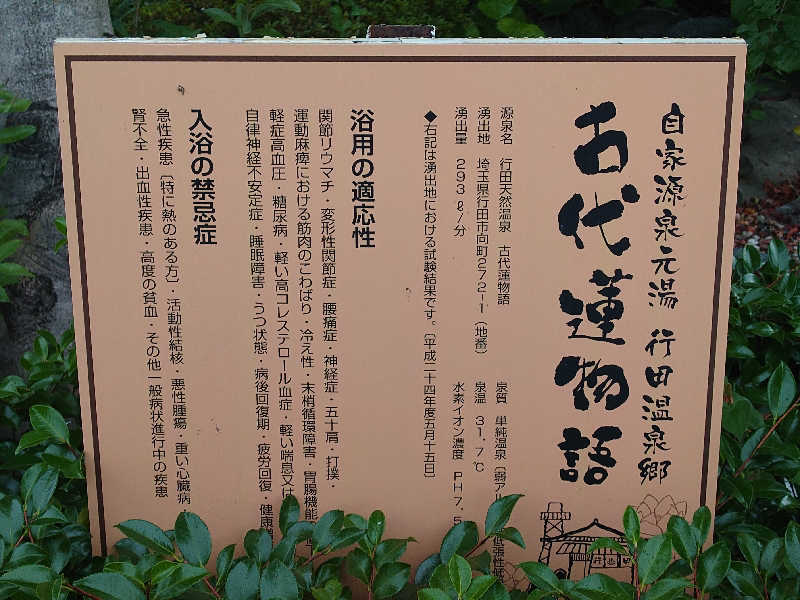 自家源泉元湯 行田温泉郷
古代蓮物語
源泉名 行田天然温泉 古代蓮物語
湧出地 埼玉県行田市向町272-1（地番）
湧出量 293ℓ/分
泉質 単純温泉〔弱アル 低張性低
泉温 31.7℃
水素イオン濃度 PH7.5
◆右記は湧出地における試験結果です。〔平成二十四年度五月十五日〕
浴用の適応性
関節リウマチ・変形性関節症・腰痛症・神経症・五十肩・打撲・
運動麻痺における筋肉のこわばり・冷え性・末梢循環障害・胃腸機能
軽症高血圧・糖尿病・軽い高コレステロール血症・軽い喘息又は
自律神経不安定症・睡眠障害・うつ状態・病後回復期・疲労回復・健康増
入浴の禁忌症
急性疾患〔特に熱のある方〕・活動性結核・悪性腫瘍・重い心臓病・
腎不全・出血性疾患・高度の貧血・その他一般病状進行中の疾患